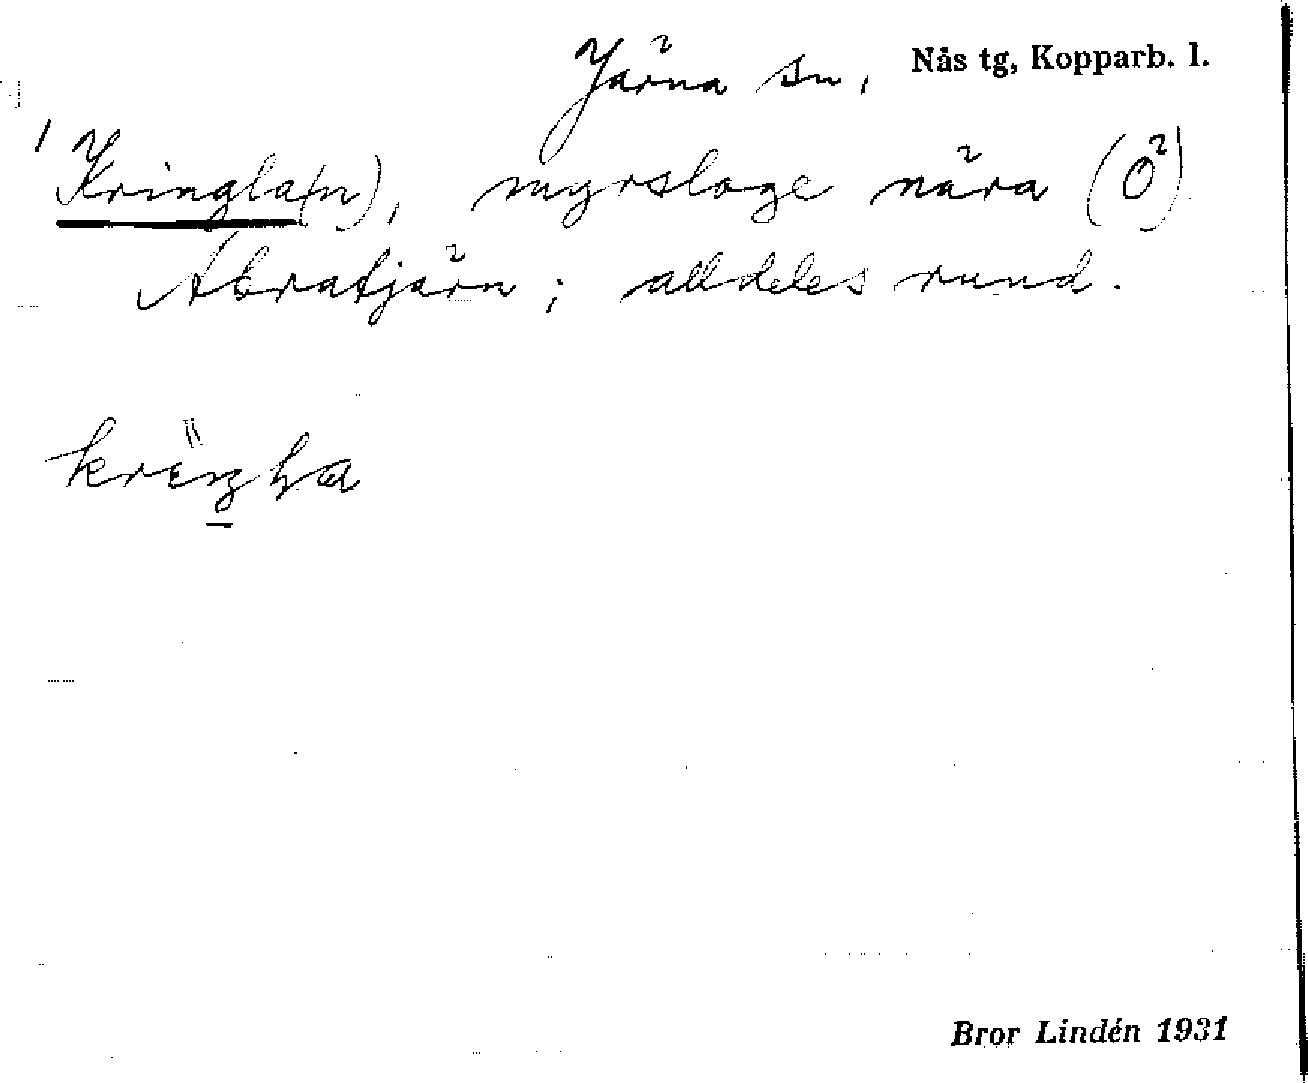 Järna sn, Nås tg, Kopparb. l.
' Kringla(n), myrsloge nära (Ö)
Abratjärn; alldeles rund.
Bror Lindén 1931